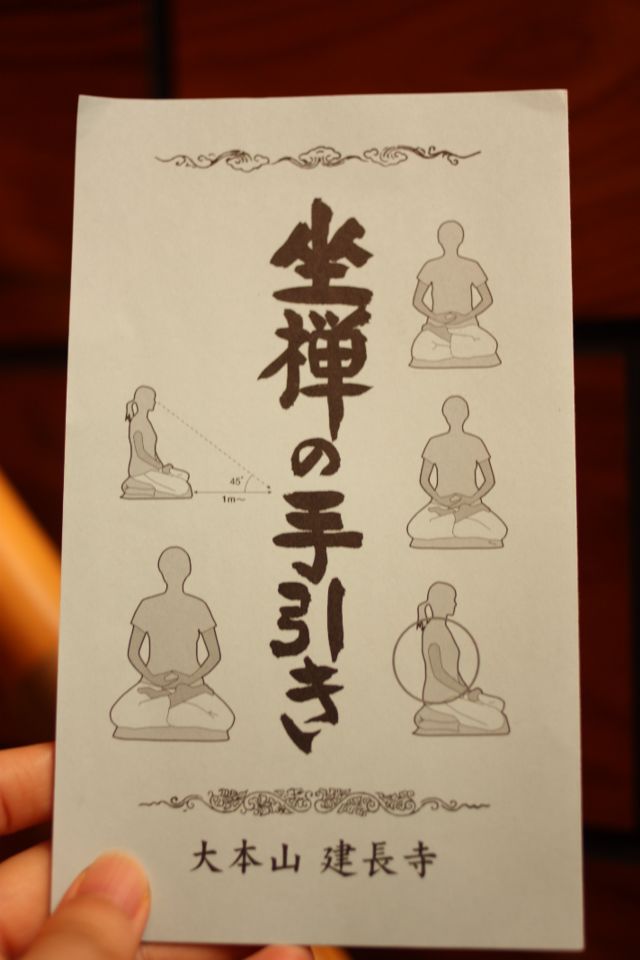 坐禅の手引き
45°
1m〜
大本山 建長寺